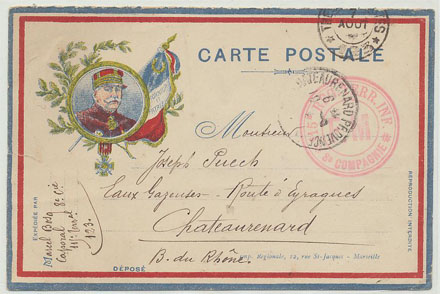 CARTE POSTALE
AOUT
CHATEAURENARD PROVENCE
TERR. INF
8e COMPAGNIE
Monsieur
Joseph Puech
Eaux Gazeuses - Route d'Eyragues
Chateaurenard
B. du Rhône.
EXPÉDIÉE PAR
Marcel
Caporal 8e Cie
11e
123
DÉPOSÉ
Imp. Régionale, 12, rue St-Jacques - Marseille
REPRODUCTION INTERDITE